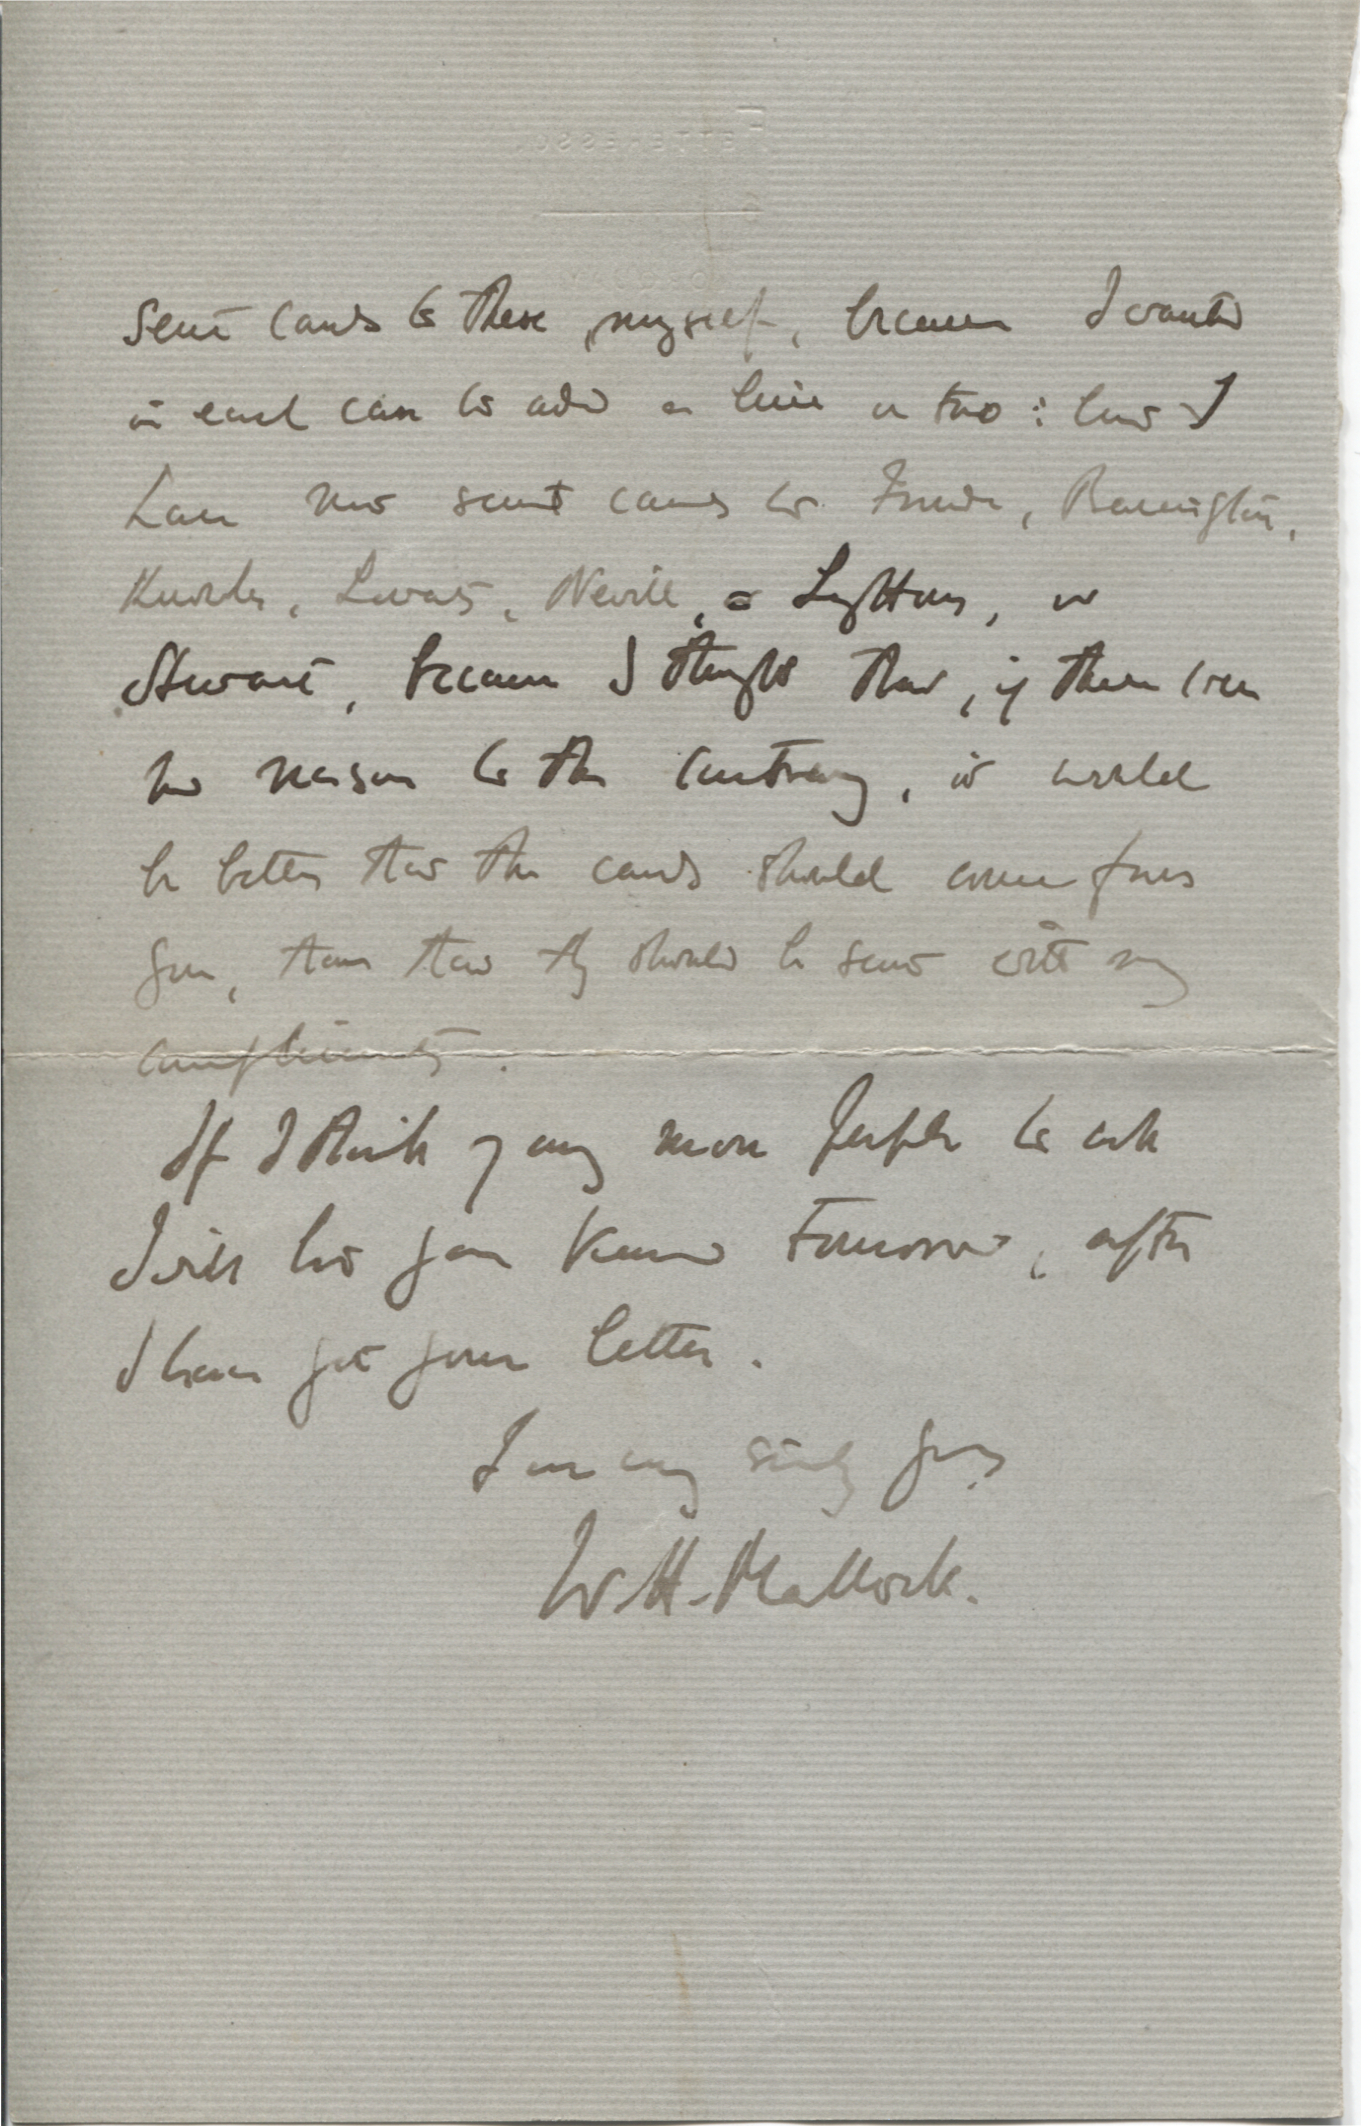 sent cards to these myself, because I wanted
in each case to add a line or two: but I
have not sent cards to Froude, Barrington,
Knowles, Lucas, Nevill, or Lytton, or
Stewart, because I thought that, if there were
no reason to the contrary, it would
be better that the cards should come from
you, than that they should be sent with my
compliments.
If I think of any more people to ask
I will let you know tomorrow, after
I have got your letter.
I am very sincly yrs
W. H. Mallock.